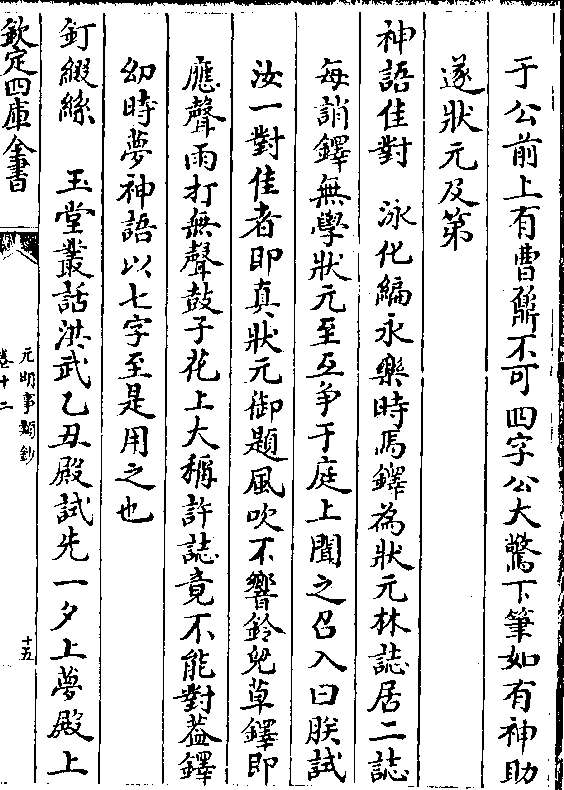 于公前上有曹鼐不可四字公大驚下筆如有神助
遂狀元及第
神語佳對　泳化編永樂時馬鐸為狀元林誌居二誌
每誚鐸無學狀元至互争于庭上聞之召入曰朕試
汝一對佳者即真狀元御題風吹不響鈴兒草鐸即
應聲雨打無聲鼓子花上大稱許誌竟不能對葢鐸
幼時夢神語以七字至是用之也
釘綴絲　玉堂叢話洪武乙丑殿試先一夕上夢殿上
欽定四庫全書
元明事類鈔
卷十二
十五